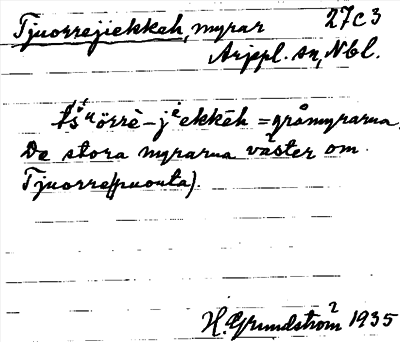 Tjuorrejiekkeh, myrar 27C3
Arjepl. sn, Nbl.
tšuörrè-jiekkēh = gråmyrarna.
De stora myrarna väster om
Tjuorre(puouta).
H. Grundström 1935